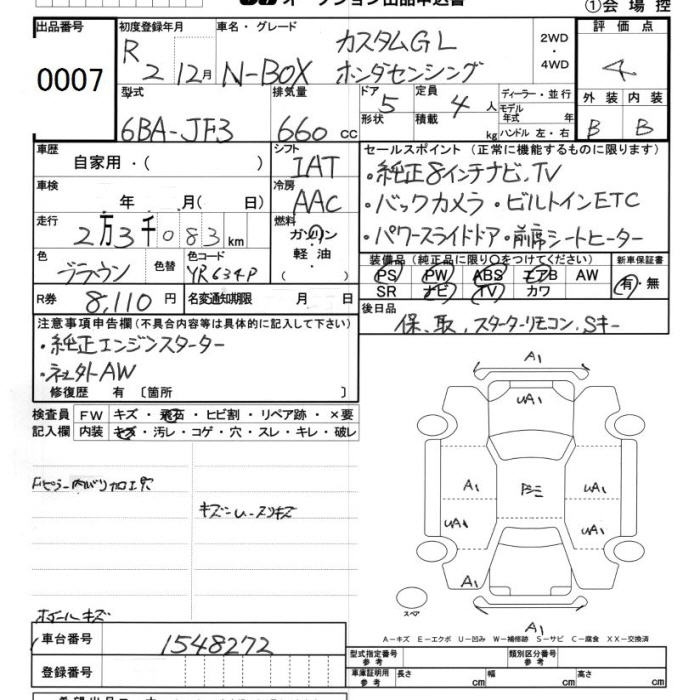 オークション出品申込書
①会場控
出品番号 0007
初度登録年月 R 2 12月
車名・グレード N-BOX カスタムGL ホンダセンシング
2WD ・ 4WD
評価点 4
外装 内装
B B
型式 6BA-JF3
排気量 660 cc
ドア 5 形状
定員 4 人
積載 kg
ディーラー・並行
モデル年式 年
ハンドル 左・右
車歴 自家用・( )
シフト IAT
車検 年 月( 日)
冷房 AAC
走行 2万3千083 km
燃料 ガソリン 軽油 ・( )
色 ブラウン 色替
色コード YR634P
R券 8,110 円
名変通知期限 月 日
セールスポイント (正常に機能するものに限ります)
・純正8インチナビ、TV
・バックカメラ・ビルトインETC
・パワースライドドア・前席シートヒーター
装備品(純正品に限り○をつけてください)
PS PW ABS エアB AW
SR ナビ TV カワ
新車保証書
有・無
後日品 保、取、スターターリモコン、Sキー
注意事項申告欄(不具合内容等は具体的に記入して下さい)
・純正エンジンスターター
・社外AW
修復歴 有 〔箇所 〕
検査員記入欄
FW キズ・飛石・ヒビ割・リペア跡・×要
内装 キズ・汚レ・コゲ・穴・スレ・キレ・破レ
キズ
ホイールキズ
A1
UA1
A1 UA1
UA1 UA1
A1
A1
スペア
A-キズ E-エクボ U-凹み W-補修跡 S-サビ C-腐食 XX-交換済
車台番号 1548272
登録番号
型式指定番号 参考
類別区分番号 参考
車庫証明用 参考 長さ cm 幅 cm 高さ cm